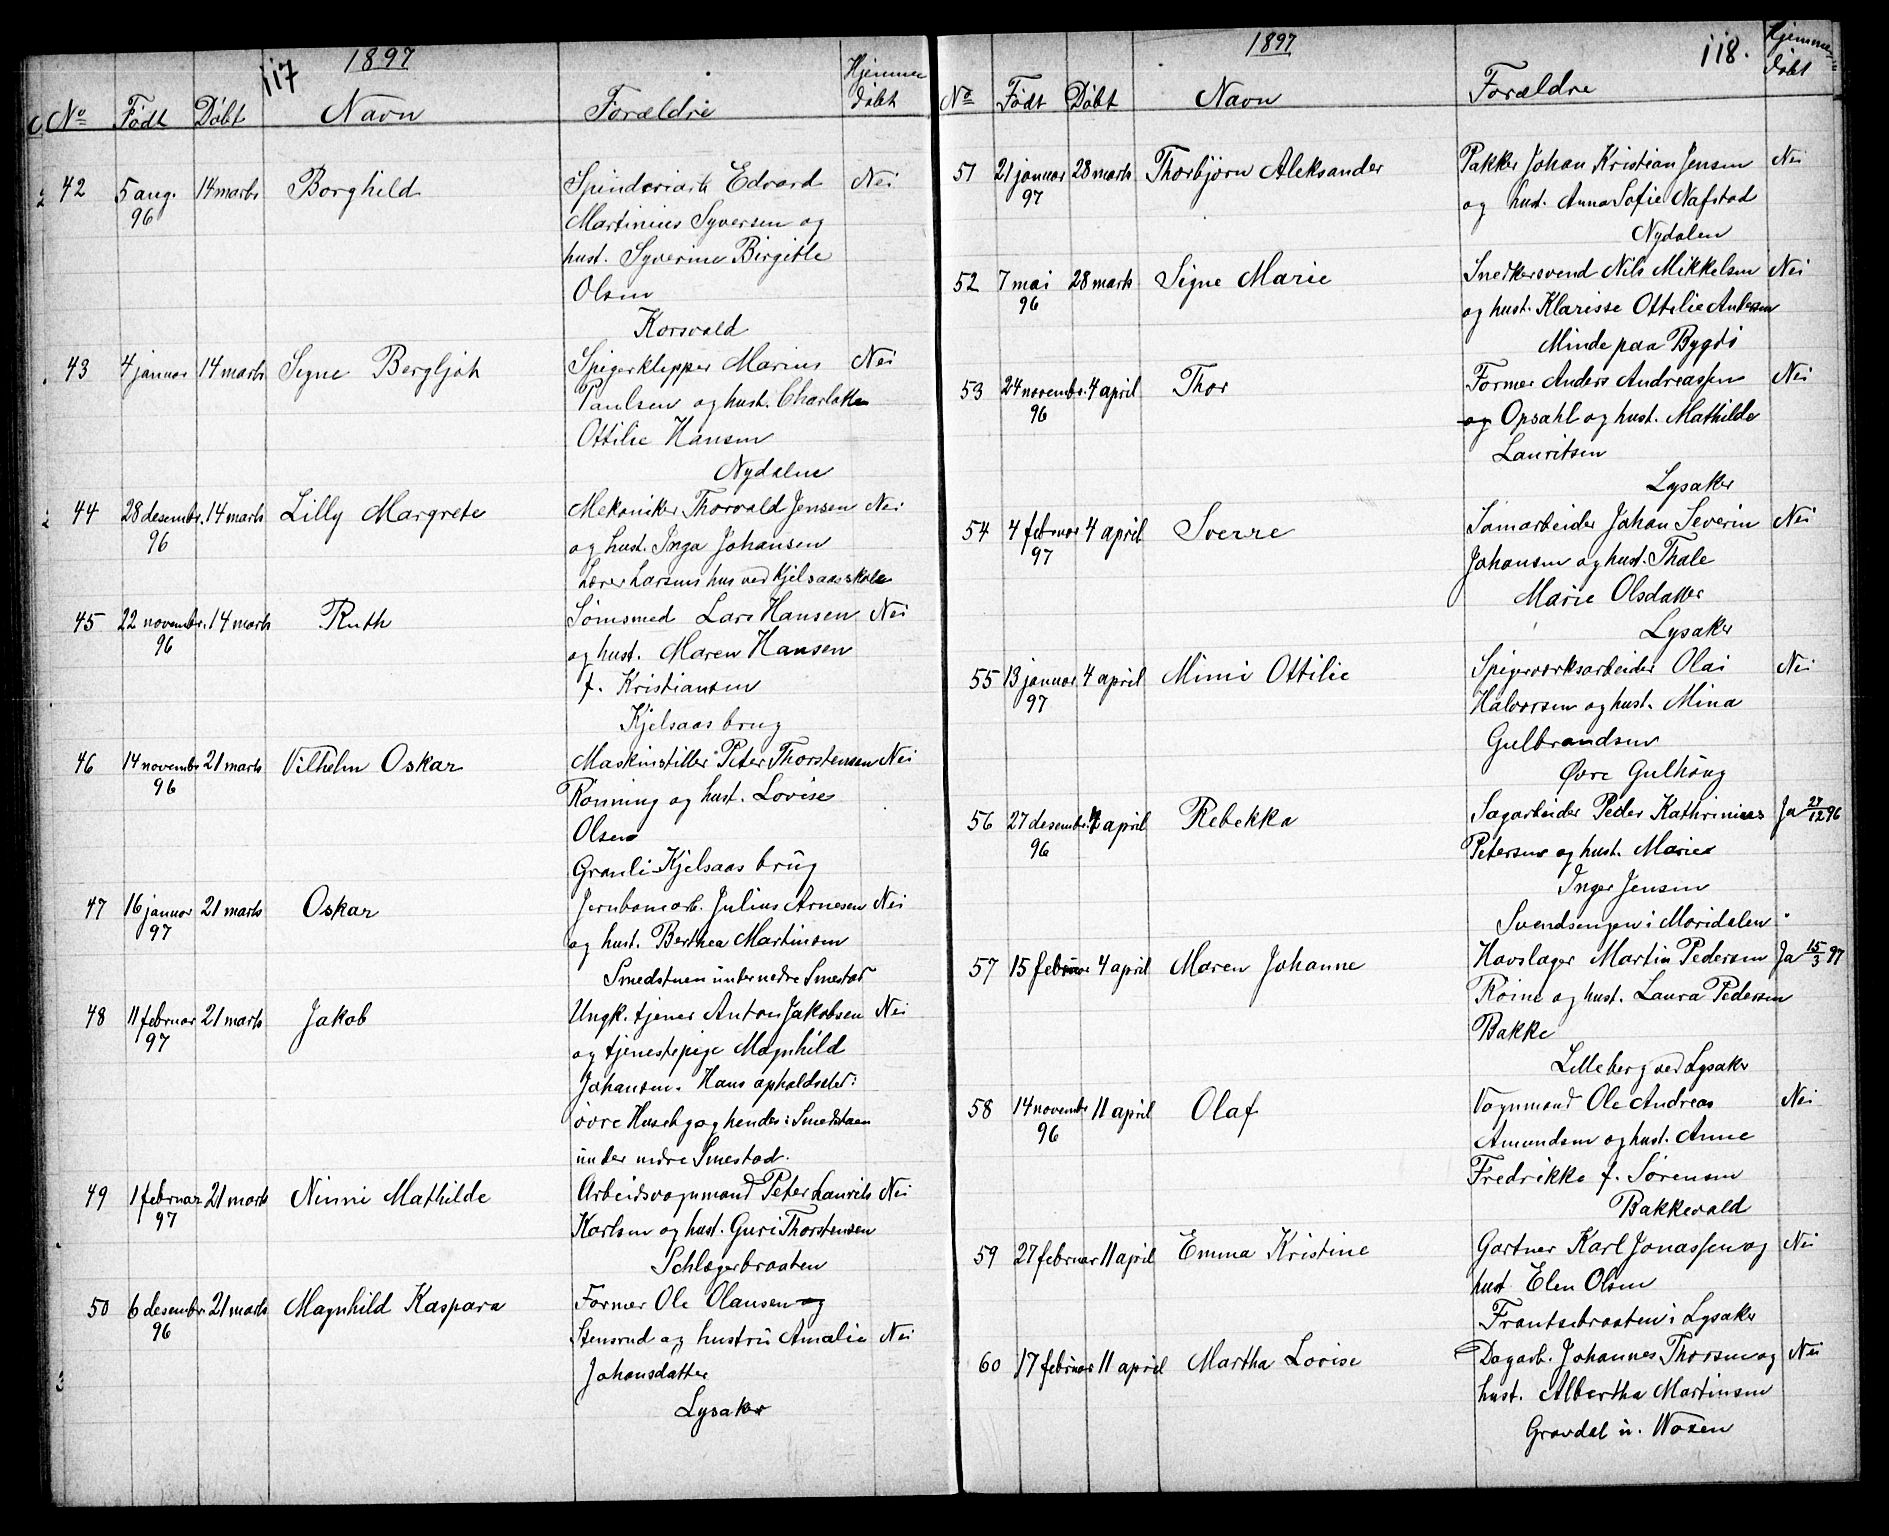 117 1897
No Født Døbt Navn Forældre Hjemme døbt
42 5 aug. 14 marts Borghild Spinderiarb. Edvard Nei
96 Martinius Syversen og
hust. Syverine Birgitte
Olsen
Korsvold
43 4 januar 14 marts Signe Bergljot Spigerklipper Marius Nei
Paulsen og hust. Charlotte
Ottilie Hansen
Nydalen
44 28 desembr. 14 marts Lilly Margrete Mekaniker Thorvald Jensen Nei
96 og hust. Inga Johansen
Lærer Larsens hus ved Kjelsaas skole
45 22 novembr. 14 marts Ruth Sømsmed Lars Hansen Nei
96 og hust. Maren Hansen
f. Kristiansen
Kjelsaas brug
46 14 novembr 21 marts Vilhelm Oskar Maskinstiller Peter Thorstensen Nei
96 Rönning og hust. Lovise
Olsen
Granli Kjelsaas brug
47 16 januar 21 marts Oskar Jernbanearb. Julius Arnesen Nei
97 og hust. Berthea Martinsen
Smedstuen under nedre Smestad
48 11 februar 21 marts Jakob Ungk. tjener Anton Jakobsen Nei
97 og tjenestepige Magnhild
Johansen. Hans opholdssted:
övre Huseby og hendes: Smedstuen
under nedre Smestad.
49 1 februar 21 marts Ninni Mathilde Arbeidsvognmand Peter Laurits Nei
97 Karlsen og hust. Guri Thorstensen
Schlægerbraaten
50 6 desembr. 21 marts Magnhild Kaspara Former Ole Olausen og
96 Stensrud og hustru Amalie Nei
Johansdatter
Lysaker
1897 118.
No Født Døbt Navn Forældre Hjemme døbt
51 21 januar 28 marts Thorbjørn Aleksander Pakker Johan Kristian Jensen Nei
97 og hust. Anna Sofie Nafstad
Nydalen
52 7 mai 28 marts Signe Marie Snedkersvend Nils Mikkelsen Nei
96 og hust. Klarisse Ottilie Andersen
Minde paa Bygdö
53 24 novembr. 4 april Thor Former Anders Andreassen Nei
96 og Opsahl og hust. Mathilde
Lauritsen
Lysaker
54 4 februar 4 april Sverre Sömarbeider Johan Severin Nei
97 Johansen og hust. Thale
Marie Olsdatter
Lysaker
55 13 januar 4 april Mimi Ottilie Spigerværksarbeider Olai Nei
97 Halvorsen og hust. Mina
Gulbrandsen
Øvre Gulhaug
56 27 desembr. 4 april Rebekka Sagarbeider Peder Kathrinius Ja 27/12 96
96 Petersen og hust. Marie
Inger Jensen
Svendsengen i Maridalen
57 15 februar 4 april Maren Johanne Hovslager Martin Pedersen Ja 15/3 97
Röine og hust. Laura Pedersen
Bakke
Lilleberg ved Lysaker
58 14 novembr 11 april Olaf Vognmand Ole Andreas Nei
96 Amundsen og hust. Anne
Fredrikke f. Sørensen
Bakkevold
59 27 februar 11 april Emma Kristine Gartner Karl Jonassen og Nei
hust Elen Olsen
Frantsebraaten i Lysaker
60 17 februar 11 april Martha Lovise Dagarb. Johannes Thorsen og Nei
hust. Albertha Martinsen
Gravdal u. Voxen